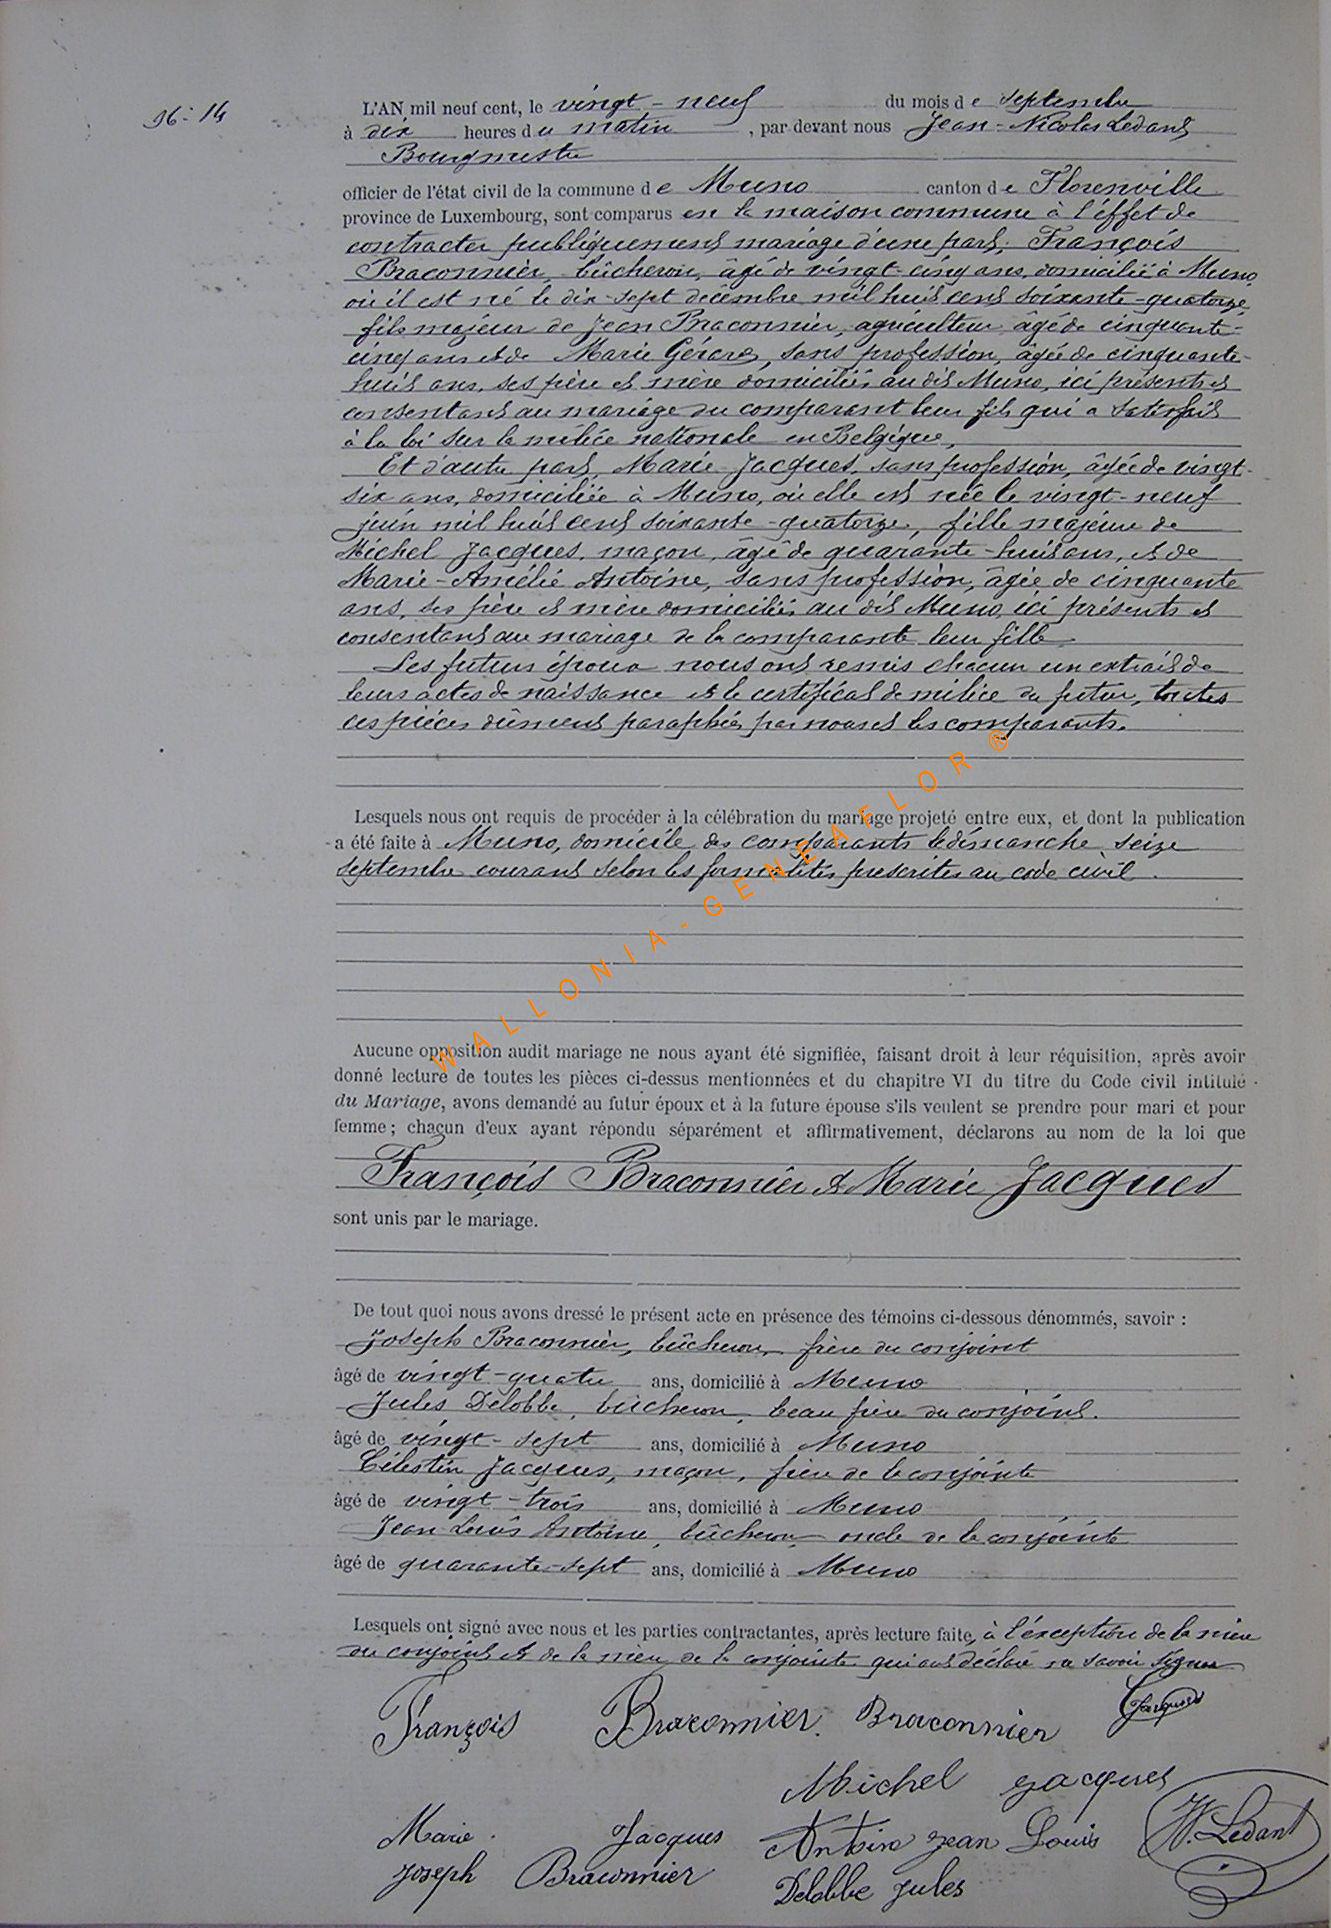 96-14
L'AN mil neuf cent, le vingt-neuf du mois de septembre
à dix heures du matin, par devant nous Jean-Nicolas Ledant
Bourgmestre
officier de l'état civil de la commune de Muno canton de Florenville
province de Luxembourg, sont comparus en la maison commune à l'effet de
contracter publiquement mariage d'une part, François
Braconnier, bûcheron, âgé de vingt-cinq ans, domicilié à Muno,
où il est né le dix-sept décembre mil huit cent soixante-quatorze,
fils majeur de Jean Braconnier, agriculteur âgé de cinquante-
cinq ans et de Marie Gérard, sans profession, âgée de cinquante-
huit ans, ses père et mère domiciliés au dit Muno, ici présents et
consentant au mariage du comparant leur fils qui a satisfait
à la loi sur la milice nationale en Belgique,
Et d'autre part, Marie Jacques, sans profession, âgée de vingt-
six ans, domiciliée à Muno, où elle est née le vingt-neuf
juin mil huit cent soixante-quatorze, fille majeure de
Michel Jacques, maçon, âgé de quarante-huit ans, et de
Marie-Amélie Antoine, sans profession, âgée de cinquante
ans, ses père et mère domiciliés au dit Muno, ici présents et
consentant au mariage de la comparante leur fille.
Les futurs époux nous ont remis chacun un extrait de
leurs actes de naissance et le certificat de milice du futur, toutes
ces pièces dûment paraphées par nous et les comparants.
Lesquels nous ont requis de procéder à la célébration du mariage projeté entre eux, et dont la publication
a été faite à Muno, domicile des comparants le dimanche seize
septembre courant selon les formalités prescrites au code civil.
Aucune opposition audit mariage ne nous ayant été signifiée, faisant droit à leur réquisition, après avoir
donné lecture de toutes les pièces ci-dessus mentionnées et du chapitre VI du titre du Code civil intitulé
du Mariage, avons demandé au futur époux et à la future épouse s'ils veulent se prendre pour mari et pour
femme; chacun d'eux ayant répondu séparément et affirmativement, déclarons au nom de la loi que
François Braconnier et Marie Jacques
sont unis par le mariage.
De tout quoi nous avons dressé le présent acte en présence des témoins ci-dessous dénommés, savoir :
Joseph Braconnier, bûcheron, frère du conjoint
âgé de vingt-quatre ans, domicilié à Muno
Jules Delobbe, bûcheron, beau frère du conjoint.
âgé de vingt-sept ans, domicilié à Muno
Célestin Jacques, maçon, frère de la conjointe
âgé de vingt-trois ans, domicilié à Muno
Jean Louis Antoine, bûcheron, oncle de la conjointe
âgé de quarante-sept ans, domicilié à Muno
Lesquels ont signé avec nous et les parties contractantes, après lecture faite, à l'exception de la mère
du conjoint et de la mère de la conjointe qui ont déclaré ne savoir signer
François Braconnier Braconnier C Jacques
Michel Jacques
Marie Jacques Antoine Jean Louis N. Ledant
Joseph Braconnier Delobbe Jules
WALLONIA-GENEAFLOR ®